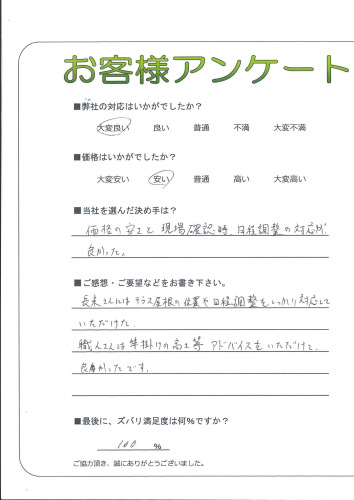 お客様アンケート
■弊社の対応はいかがでしたか？
大変良い 良い 普通 不満 大変不満
■価格はいかがでしたか？
大変安い 安い 普通 高い 大変高い
■当社を選んだ決め手は？
価格の安さと現場確認時、日程調整の対応が
良かった。
■ご感想・ご要望などをお書き下さい。
長末さんにはテラス屋根の位置や日程調整をしっかり対応して
いただけた。
職人さんは竿掛けの高さ等アドバイスをいただけて
良かったです。
■最後に、ズバリ満足度は何%ですか？
100 %
ご協力頂き、誠にありがとうございました。